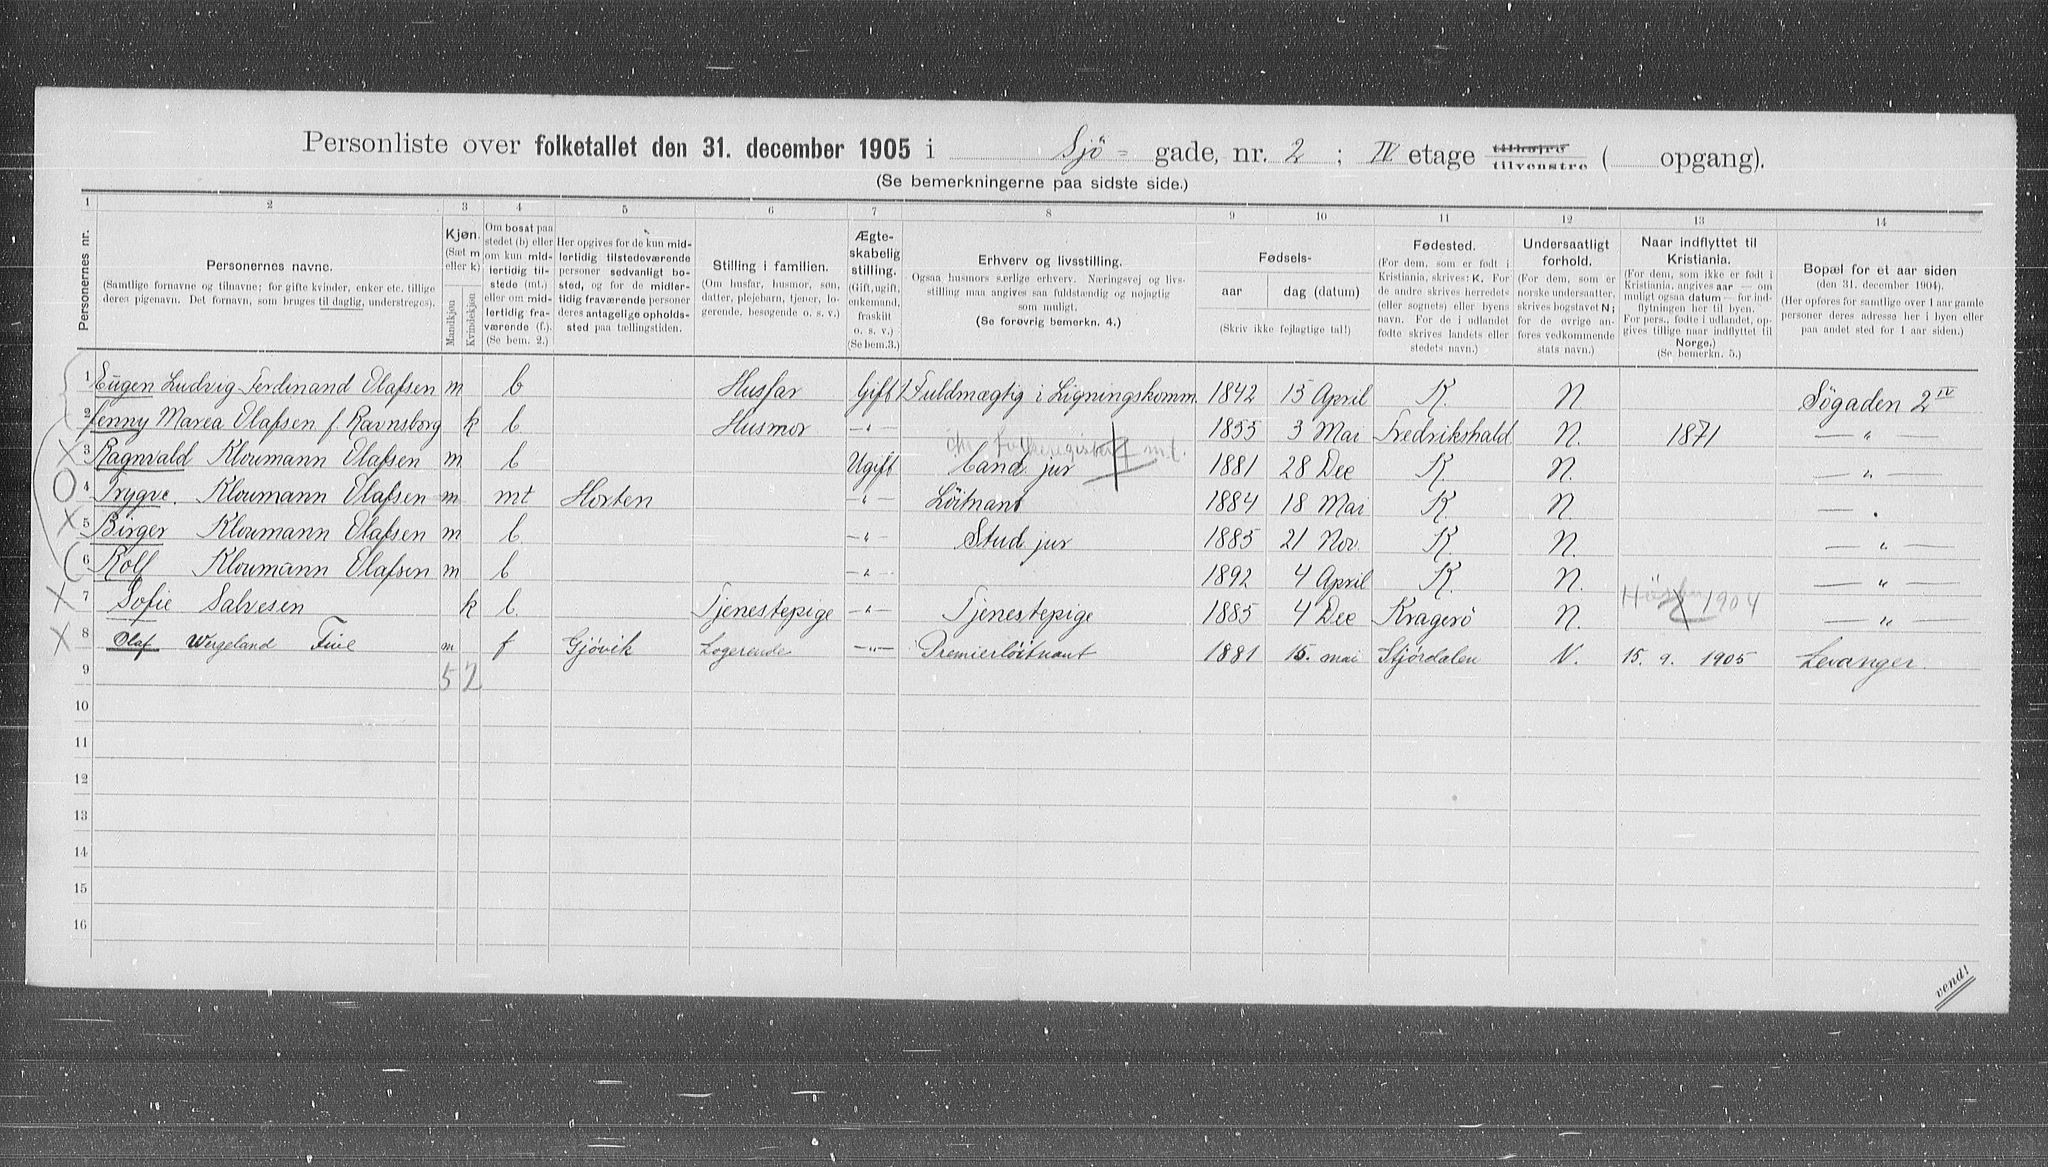 Personliste over folketallet den 31. december 1905 i Sjö= gade, nr. 2 ; IV etage tilhøjre tilvenstre ( opgang).
(Se bemerkningerne paa sidste side.)
1 2 3 4 5 6 7 8 9 10 11 12 13 14
Personernes nr.
Personernes navne.
(Samtlige fornavne og tilnavne; for gifte kvinder, enker etc. tillige
deres pigenavn. Det fornavn, som bruges til daglig, understreges).
Kjøn.
(Sæt m
eller k)
Mandkjøn
Kvindekjøn
Om bosat paa
stedet (b) eller
om kun mid-
lertidig til-
stede (mt.)
eller om mid-
lertidig fra-
værende (f.).
(Se bem. 2.)
Her opgives for de kun mid-
lertidig tilstedeværende
personer sedvanligt bo-
sted, og for de midler-
tidig fraværende personer
deres antagelige opholds-
sted paa tællingstiden.
Stilling i familien.
(Om husfar, husmor, søn,
datter, plejebarn, tjener, lo-
gerende. besøgende o. s. v.)
Ægte-
skabelig
stilling.
(Gift, ugift,
enkemand,
fraskilt
o. s. v.)
(Se bem.3.)
Erhverv og livsstilling.
Ogsaa husmors særlige erhverv. Næringsvej og livs-
stilling maa angives saa fuldstændig og nøjagtig
som muligt.
(Se forøvrig bemerkn. 4.)
Fødsels-
aar
dag (datum)
(Skriv ikke fejlagtige tal!)
Fødested.
(For dem, som er født i
Kristiania, skrives: K. For
de andre skrives herredets
(eller sognets) eller byens
navn. For de i udlandet
fødte skrives landets eller
stedets navn.)
Undersaatligt
forhold.
(For dem, som er
norske undersaatter,
skrives bogstavet N;
for de øvrige an-
føres vedkommende
stats navn.)
Naar indflyttet til
Kristiania.
(For dem, som ikke er født i
Kristiania, angives aar — om
muligt ogsaa datum — for ind-
flytningen her til byen.
For pers., fødte i udlandet, op-
gives tillige naar indflyttet til
Norge.)
(Se bemerkn. 5.)
Bopæl for et aar siden
(den 31. december 1904).
(Her opføres for samtlige over 1 aar gamle
personer deres adresse her i byen eller
paa andet sted for 1 aar siden.)
1 Eugen Ludvig Ferdinand Olafsen m b Husfar Gift Fuldmægtig i Ligningskomm. 1842 15 April K. N Søgaden 2 IV
2 Jenny Marea Olafsen f. Ravnsborg k b Husmor — " — 1855 3 Mai Fredrikshald N. 1871 — " —
3 Ragnvald Kloumann Olafsen m b Ugift Cand jur 1881 28 Dec K N. — " —
4 Trygve. Kloumann Olafsen m mt Horten — " — Löitnant 1884 18 Mai K. N. — " —
5 Birger Kloumann Olafsen m b — " — Stud jur 1885 21 Nov. K. N. — " —
6 Rolf Kloumann Olafsen m b — " — 1892 4 April K. N. — " —
7 Sofie Salvesen k b. Tjenestepige — " — Tjenestepige 1885 4 Dec Kragerö N. 1904 — " —
8 Olaf Wergeland Five m f Gjövik Logerende — " — Premierlöitnant 1881 15. mai Stjördalen N. 15. 9. 1905 Levanger.
9 5 2
10
11
12
13
14
15
16
vend!